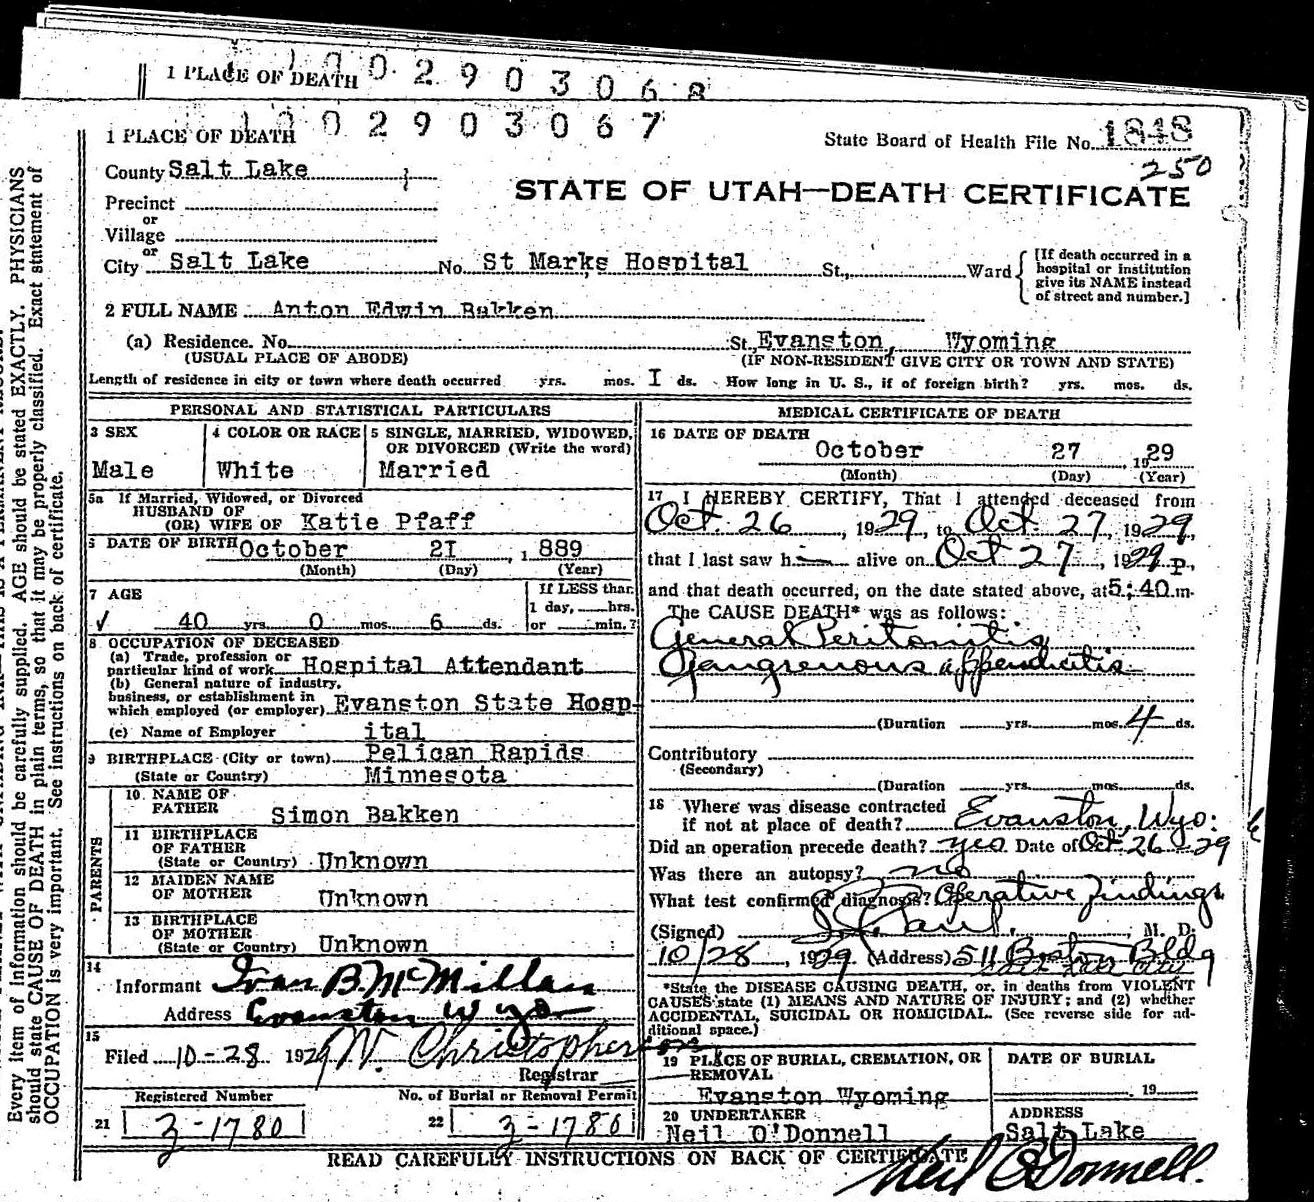 1 PLACE OF DEATH
1 0 0 2 9 0 3 0 6 8
1 PLACE OF DEATH
1 0 0 2 9 0 3 0 6 7
State Board of Health File No. 1848
250
County Salt Lake
STATE OF UTAH—DEATH CERTIFICATE
Precinct
or
Village
or
City Salt Lake No. St Marks Hospital St., Ward
[If death occurred in a
hospital or institution
give its NAME instead
of street and number.]
2 FULL NAME Anton Edwin Bakken
(a) Residence. No. St. Evanston, Wyoming
(USUAL PLACE OF ABODE) (IF NON-RESIDENT GIVE CITY OR TOWN AND STATE)
Length of residence in city or town where death occurred yrs. mos. I ds. How long in U. S., if of foreign birth? yrs. mos. ds.
PERSONAL AND STATISTICAL PARTICULARS
3 SEX
Male
4 COLOR OR RACE
White
5 SINGLE, MARRIED, WIDOWED,
OR DIVORCED (Write the word)
Married
5a If Married, Widowed, or Divorced
HUSBAND OF
(OR) WIFE OF Katie Pfaff
6 DATE OF BIRTH October 2I , 1889
(Month) (Day) (Year)
7 AGE
✓ 40 yrs. 0 mos. 6 ds.
If LESS than
1 day, hrs.
or min.?
8 OCCUPATION OF DECEASED
(a) Trade, profession or
particular kind of work Hospital Attendant
(b) General nature of industry,
business, or establishment in
which employed (or employer) Evanston State Hosp-
(c) Name of Employer ital
9 BIRTHPLACE (City or town) Pelican Rapids
(State or Country) Minnesota
PARENTS
10 NAME OF
FATHER Simon Bakken
11 BIRTHPLACE
OF FATHER
(State or Country) Unknown
12 MAIDEN NAME
OF MOTHER Unknown
13 BIRTHPLACE
OF MOTHER
(State or Country) Unknown
14
Informant Ivan B. McMillan
Address Evanston Wyo
15
Filed 10-28 1929 W. Christopherson
Registrar
Registered Number
21 3-1780
No. of Burial or Removal Permit
22 3-1786
MEDICAL CERTIFICATE OF DEATH
16 DATE OF DEATH
October 27 , 1929
(Month) (Day) (Year)
17 I HEREBY CERTIFY, That I attended deceased from
Oct. 26 , 1929, to Oct. 27, 1929,
that I last saw h alive on Oct 27 , 1929 P.,
and that death occurred, on the date stated above, at 5:40 m.
The CAUSE DEATH* was as follows:
General Peritonitis
Gangrenous appendicitis
(Duration yrs. mos. 4 ds.
Contributory
(Secondary)
(Duration yrs. mos. ds.
18 Where was disease contracted
if not at place of death? Evanston, Wyo.
Did an operation precede death? yes Date of Oct 26 29
Was there an autopsy? no
What test confirmed diagnosis? Operative findings
(Signed) Paul. , M. D.
10/28 , 1929 (Address) 511 Boston Bldg
Salt Lake City
*State the DISEASE CAUSING DEATH, or, in deaths from VIOLENT
CAUSES state (1) MEANS AND NATURE OF INJURY; and (2) whether
ACCIDENTAL, SUICIDAL OR HOMICIDAL. (See reverse side for ad-
ditional space.)
19 PLACE OF BURIAL, CREMATION, OR
REMOVAL
Evanston Wyoming
DATE OF BURIAL
19
20 UNDERTAKER
Neil O'Donnell
ADDRESS
Salt Lake
READ CAREFULLY INSTRUCTIONS ON BACK OF CERTIFICATE
Neil O'Donnell.
Every item of information should be carefully supplied. AGE should be stated EXACTLY. PHYSICIANS
should state CAUSE OF DEATH in plain terms, so that it may be properly classified. Exact statement of
OCCUPATION is very important. See instructions on back of certificate.